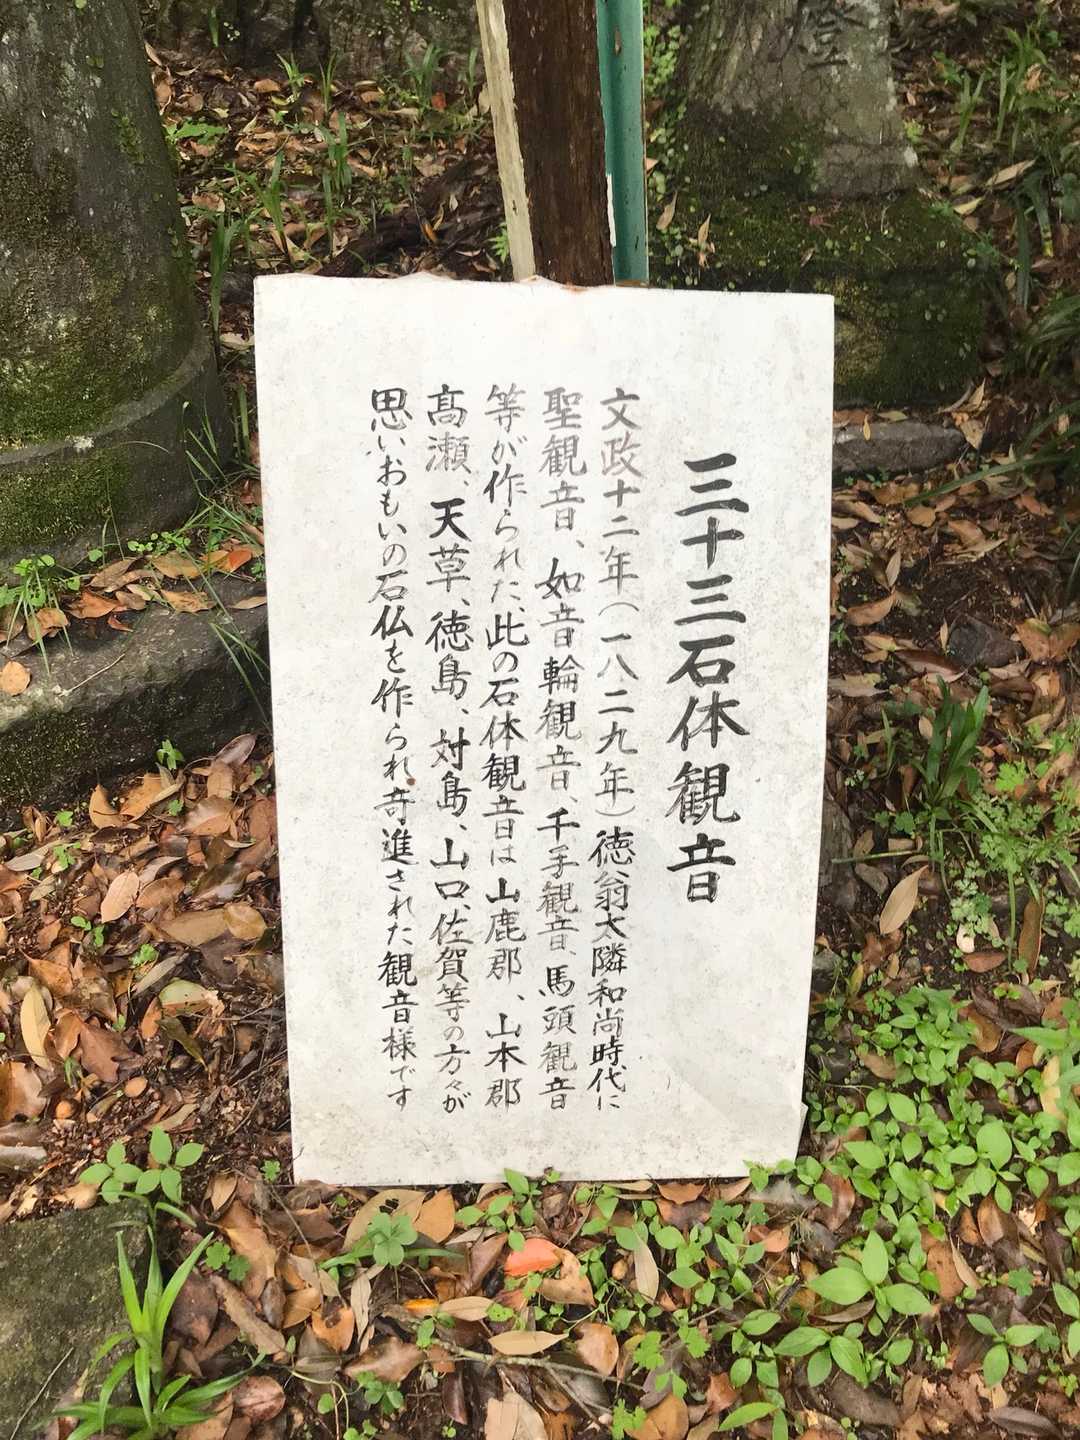 三十三石体観音
文政十二年(一八二九年)徳翁太隣和尚時代に
聖観音、如音輪観音、千手観音、馬頭観音
等が作られた、此の石体観音は山鹿郡、山本郡
高瀬、天草、徳島、対島、山口、佐賀等の方々が
思いおもいの石仏を作られ奇進された観音様です